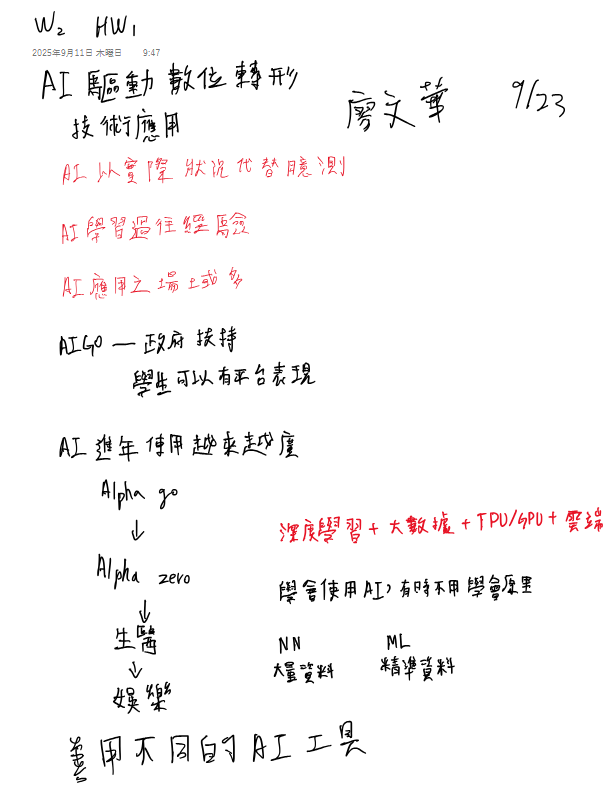 W2 HW1
2025年9月11日 木曜日 9:47
AI 驅動數位轉形
技術應用
廖文華 9/23
AI 以實際狀況代替臆測
AI學習過往經驗
AI應用之場域多
AIGO — 政府扶持
學生可以有平台表現
AI 進年使用越來越廣
Alpha go
↓
深度學習 + 大數據 + TPU/GPU + 雲端
Alpha zero
學會使用AI, 有時不用學會原理
↓
生醫
NN ML
大量資料 精準資料
↓
娛樂
善用不同的AI工具